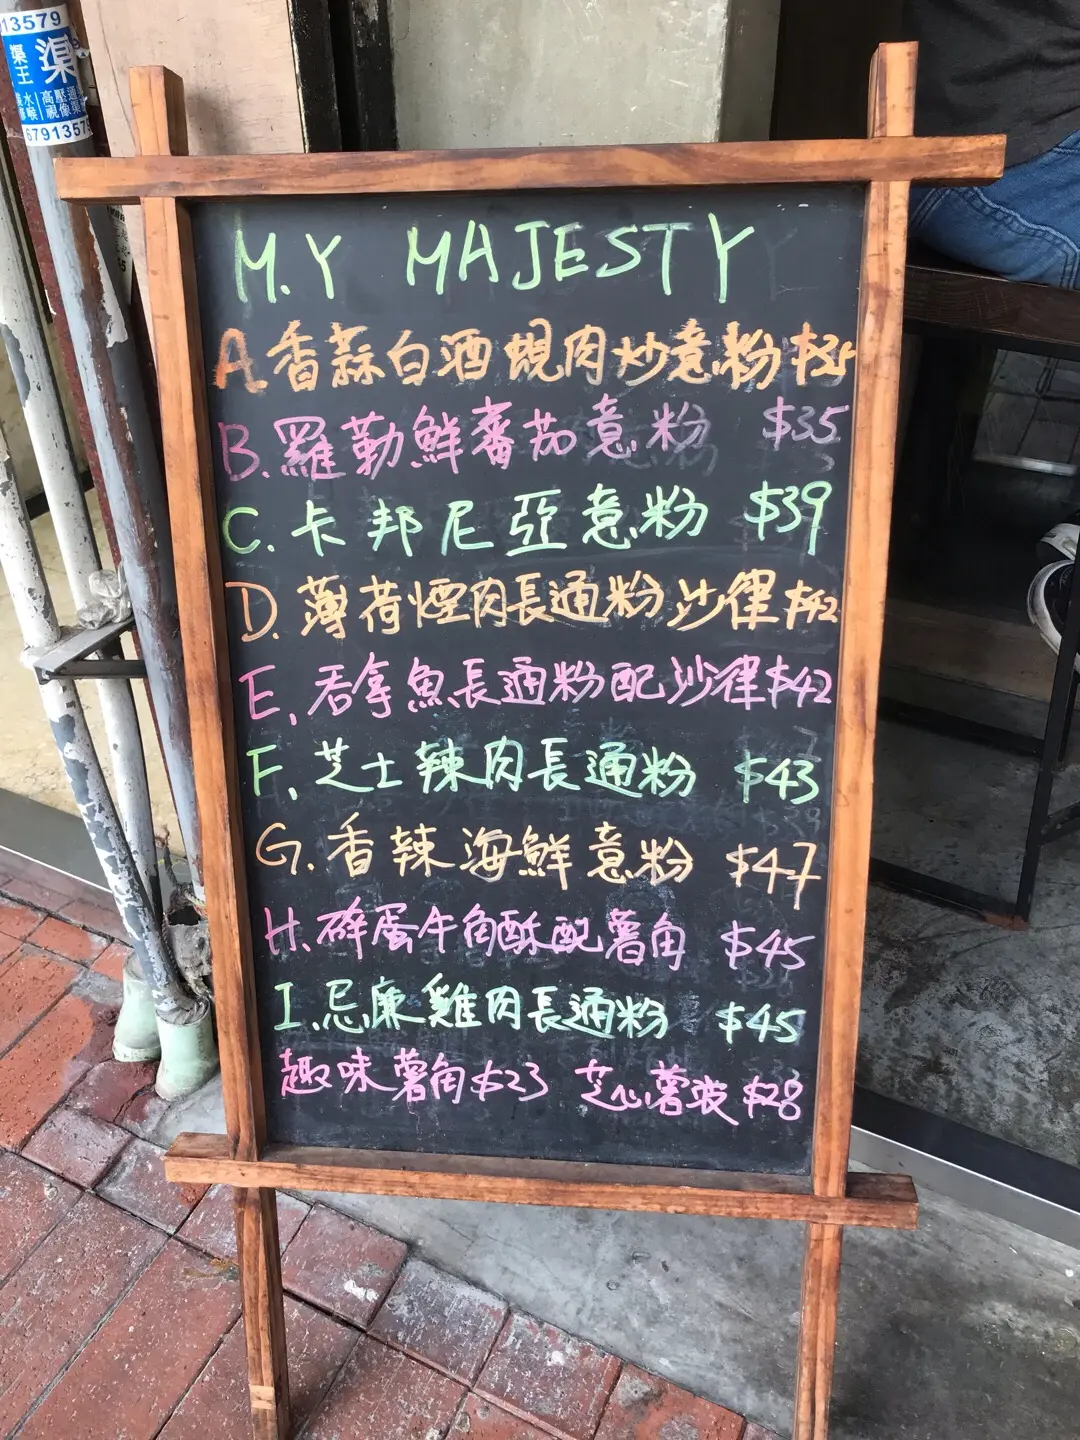 13579
渠王
渠
高壓通
視像渠
6791357
M.Y MAJESTY
A.香蒜白酒蜆肉炒意粉 $35
B.羅勒鮮番茄意粉 $35
C.卡邦尼亞意粉 $39
D.薄荷煙肉長通粉沙律 $42
E.吞拿魚長通粉配沙律 $42
F.芝士辣肉長通粉 $43
G.香辣海鮮意粉 $47
H.碎蛋牛角酥配薯角 $45
I.忌廉雞肉長通粉 $45
趣味薯角 $23 芝心薯波 $28